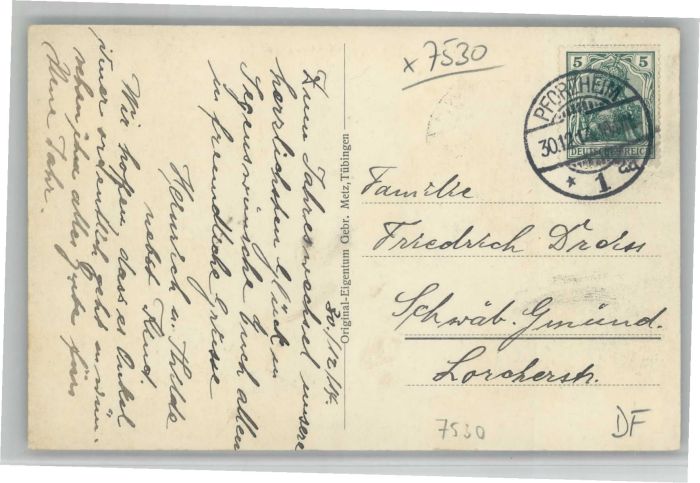 x 7530
5 5
DEUTSCHES REICH
PFORZHEIM
30.12.14
* 1 a
30./12.14.
Zum Jahreswechsel unsere
herzlichsten Glück u.
Segenswünsche Euch allen
u. freundliche Grüsse
Heinrich u. Thilde
nebst Kind.
Wir hoffen, dass es Onkel
immer ordentlich geht u. wün-
schen ihm alles Gute fürs
Neue Jahr.
Original-Eigentum Gebr. Metz, Tübingen
Familie
Friedrich
Schwäb. Gmünd.
Lorcherstr.
7530
DF